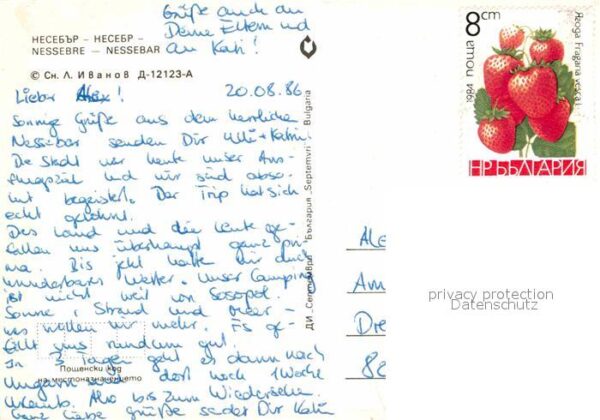 Grüße auch an
Deine Eltern und
an Kati!
НЕСЕБЪР - НЕСЕБР -
NESSEBRE - NESSEBAR
© Сн. Л. Иванов Д-12123-А
20.08.86
Lieber Alex!
Sonnige Grüße aus dem herrlichen
Nessebar senden Dir Ulli + Katrin!
Die Stadt war heute unser Aus-
flugsziel und wir sind abso-
lut begeistert. Der Trip hat sich
echt gelohnt.
Das Land und die Leute ge-
fallen uns überhaupt ganz pri-
ma. Bis jetzt hatten wir auch
wunderbares Wetter. Unser Camping
ist nicht weit von Sosopol.
Sonne, Strand und Meer -
was wollen wir mehr. Es ge-
fällt uns rundum gut!
In 3 Tagen geht es dann nach
Ungarn und dort noch 1 Woche
Urlaub. Also bis zum Wiedersehen.
Ganz liebe Grüße sendet Dir Kati
Пощенски код
на местоназначението
ДИ „Септември" България „Septemvri" Bulgaria
8 cm
1984 поща
Ягода Fragaria vesca L.
НР БЪЛГАРИЯ
Ale
Am
Dre
80
privacy protection
Datenschutz